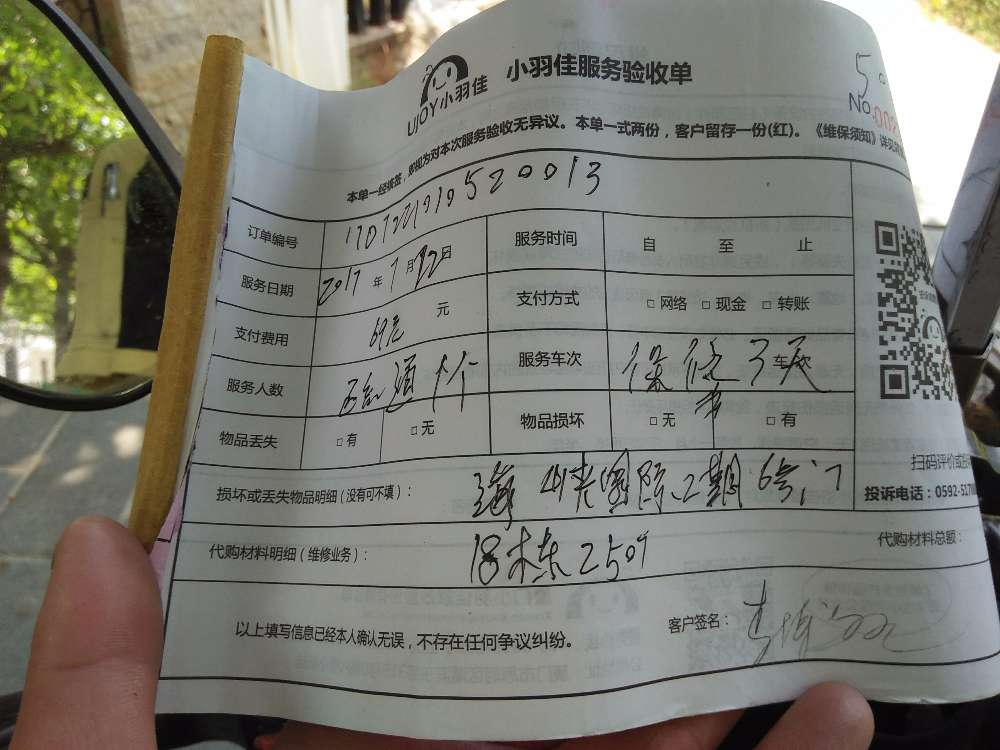 UJOY小羽佳 小羽佳服务验收单
50
No.002
本单一经核签，即视为对本次服务验收无异议。本单一式两份，客户留存一份(红)。《维保须知》详见
订单编号
服务日期 2017年7月22日
服务时间 自 至 止
支付费用 69元 元
支付方式 □网络 □现金 □转账
服务人数 个
服务车次 保修3天 车次
物品丢失 □有 □无
物品损坏 □无 □有
损坏或丢失物品明细（没有可不填）： 国际二期6号门
代购材料明细（维修业务）： 18栋2504
代购材料总额：
以上填写信息已经本人确认无误，不存在任何争议纠纷。
客户签名：
扫码评价或
投诉电话：0592-517